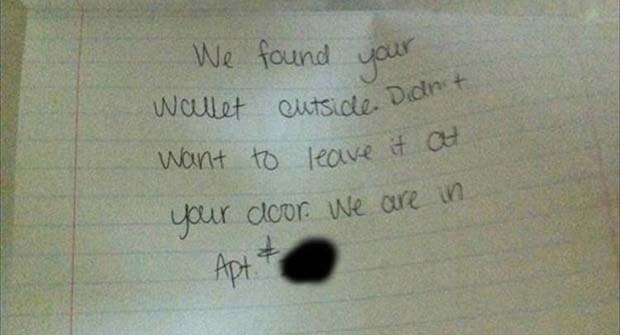 We found your
Wallet outside. Didn't
want to leave it at
your door. We are in
Apt. #